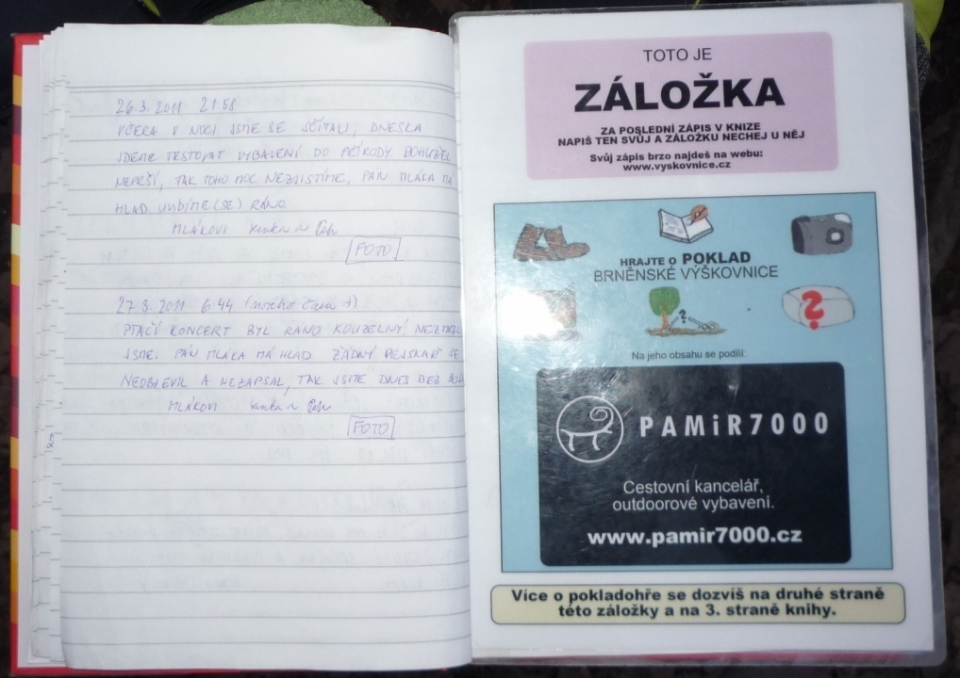 26.3.2011 21:58
VČERA V NOCI JSME SE SČÍTALI, DNESKA
JDEME TESTOVAT VYBAVENÍ DO PŘÍRODY. BOHUŽEL
NEPRŠÍ, TAK TOHO MOC NEZJISTÍME. PÁN MLÁKA MÁ
HLAD. UVIDÍME (SE) RÁNO
MLÁKOVI
FOTO
27.3.2011 6:44
PTAČÍ KONCERT BYL RÁNO KOUZELNÝ
JSME. PÁN MLÁKA MÁ HLAD. ŽÁDNÝ SE
NEOBJEVIL A NEZAPSAL, TAK JSME DNES BEZ
MLÁKOVI
FOTO
TOTO JE
ZÁLOŽKA
ZA POSLEDNÍ ZÁPIS V KNIZE
NAPIŠ TEN SVŮJ A ZÁLOŽKU NECHEJ U NĚJ
Svůj zápis brzo najdeš na webu:
www.vyskovnice.cz
HRAJTE O POKLAD
BRNĚNSKÉ VÝŠKOVNICE
?
?
Na jeho obsahu se podílí:
PAMiR7000
Cestovní kancelář,
outdoorové vybavení.
www.pamir7000.cz
Více o pokladohře se dozvíš na druhé straně
této záložky a na 3. straně knihy.